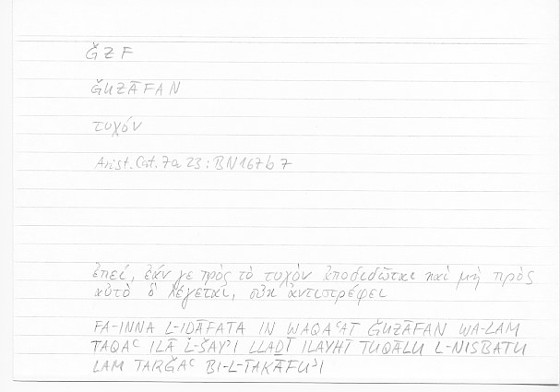 ǦZF
ǦUZĀFAN
τυχόν
Arist. Cat. 7a 23 : BN 167 b 7
ἐπεί, ἐάν γε πρὸς τὸ τυχὸν ἀποδιδῶται καὶ μὴ πρὸς
αὐτὸ ὃ λέγεται, οὐκ ἀντιστρέφει
FA-INNA L-IḌĀFATA IN WAQAʿAT ǦUZĀFAN WA-LAM
TAQAʿ ILĀ L-ŠAYʾI LLAḎĪ ILAYHĪ TUQĀLU L-NISBATU
LAM TARǦAʿ BI-L-TAKĀFUʾI